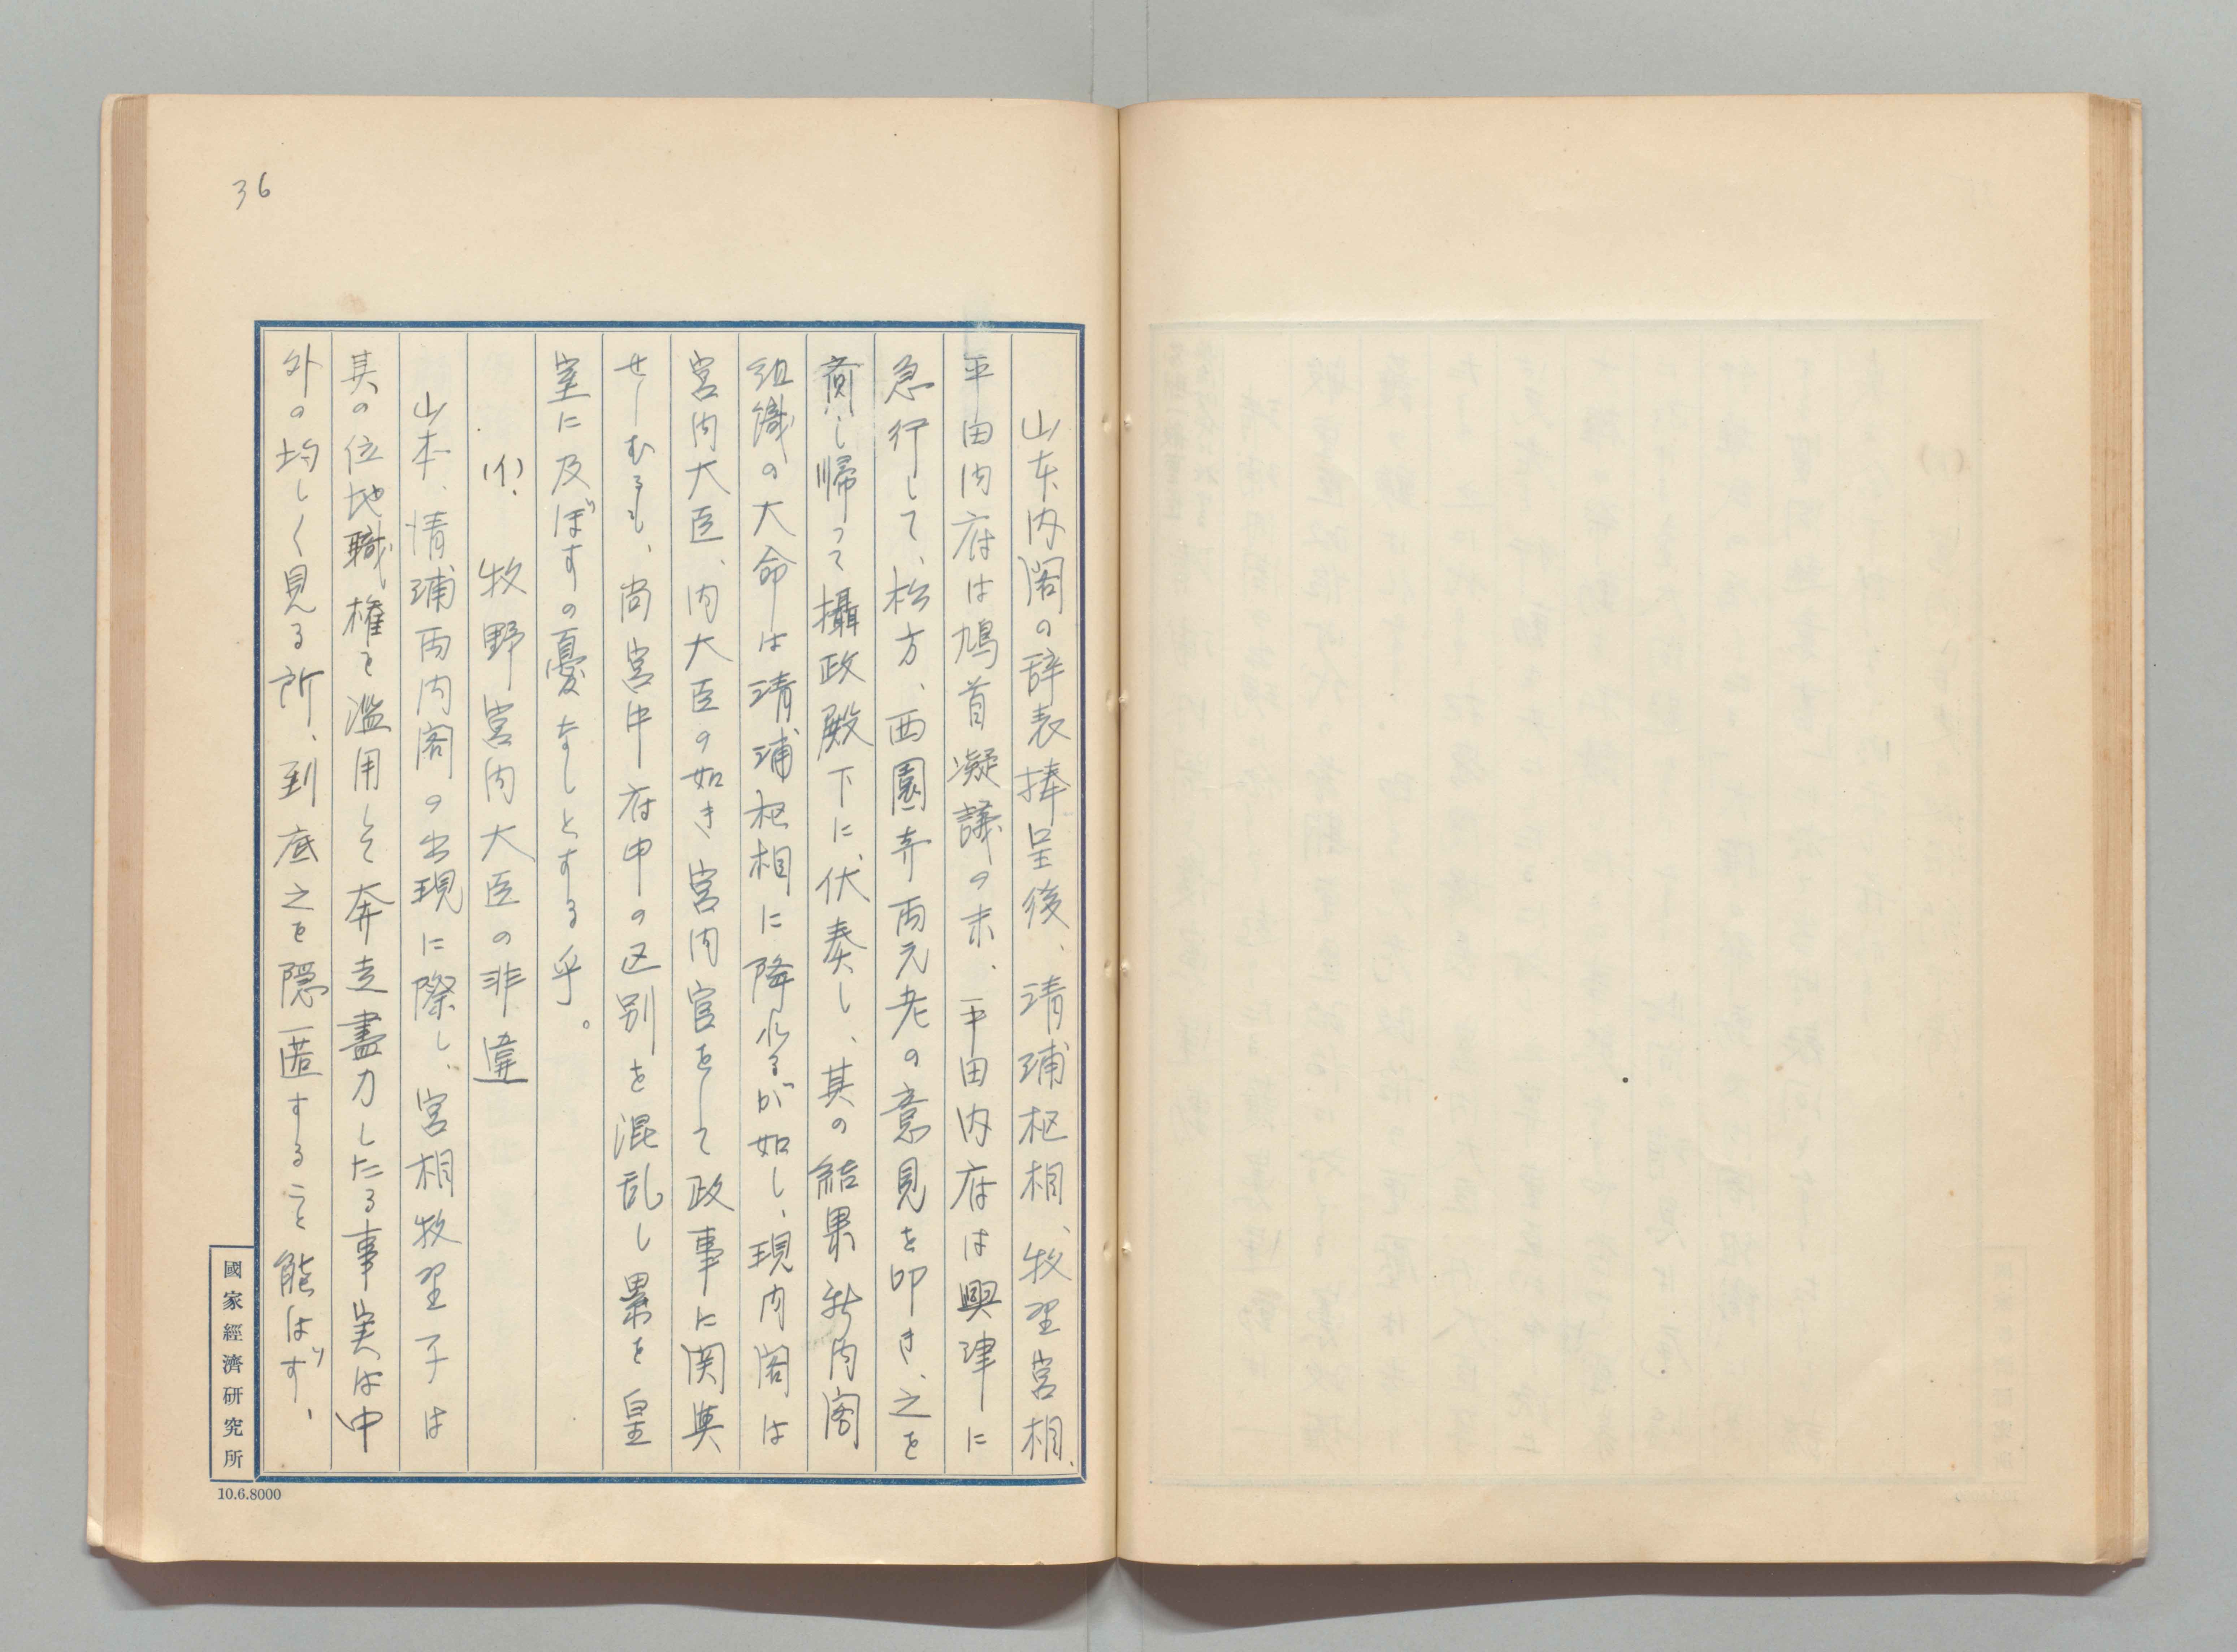 36
山本内閣の辞表捧呈後、清浦枢相、牧野宮相、
平田内府は鳩首凝議の末、平田内府は興津に
急行して、松方、西園寺両元老の意見を叩き、之を
齎し帰って攝政殿下に伏奏し、其の結果新内閣
組織の大命は清浦枢相に降れるが如し、現内閣は
宮内大臣、内大臣の如き宮内官をして政事に関與
せしむるも、尚宮中府中の区別を混乱し累を皇
室に及ぼすの憂なしとする乎。
(イ) 牧野宮内大臣の非違
山本、清浦両内閣の出現に際し、宮相牧野子は
其の位地職権を濫用して奔走盡力したる事実は中
外の均しく見る所、到底之を隠匿すること能はず、
國家經濟研究所
10.6.8000